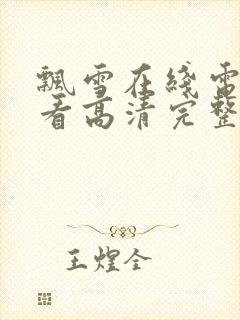 飘雪在线电
看高清完整
王煜全